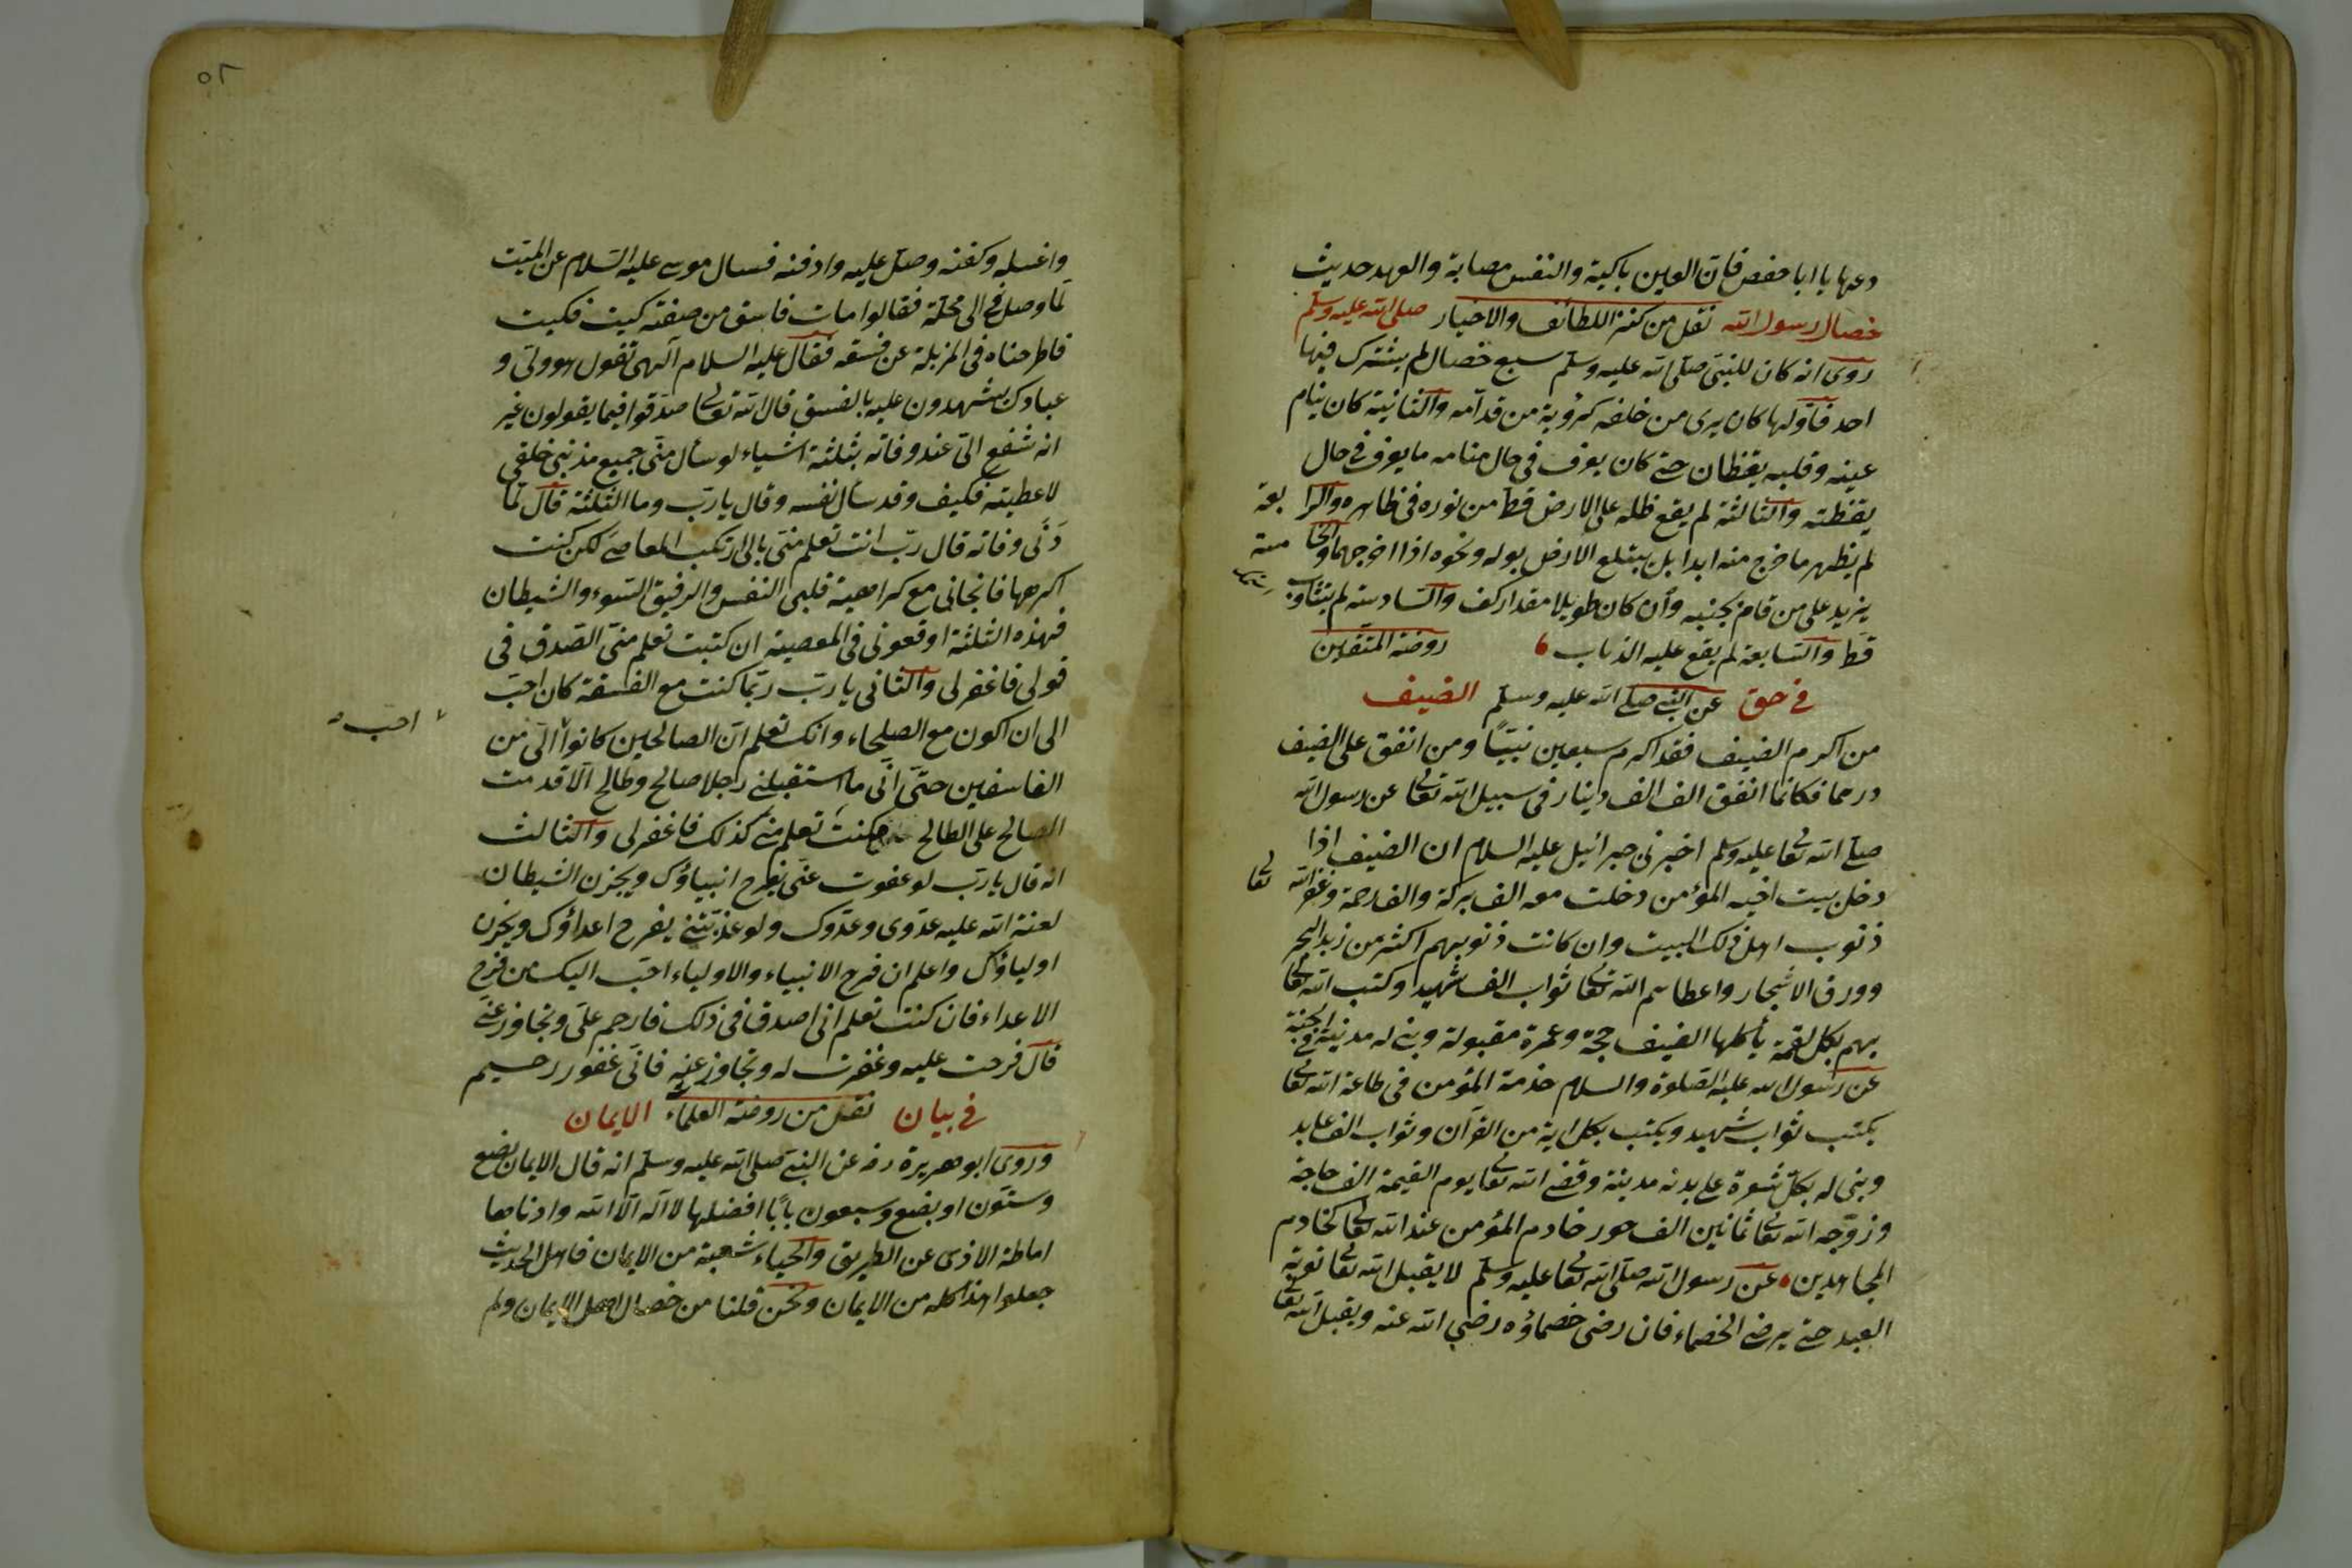 دعها يا ابا حفص فان العين باكية والنفس مصابة والعهد حديث
خصال رسول الله نقل من كنز اللطائف والاخبار صلى الله عليه وسلم
روى انه كان للنبي صلى الله عليه وسلم سبع خصال لم يشترك فيها
احد فاولها كان يرى من خلفه كرؤية من قدامه والثانية كان ينام
عينه وقلبه يقظان حتى كان يعرف في حال منامه ما يعرف في حال
يقظته والثالثة لم يقع ظله على الارض قط من نوره في ظاهره والرابعة
لم يظهر ما خرج منه ابدا بل يبتلع الارض بوله ونحوه اذا اخرجهما والخامسة
يزيد على من قام بجنبه وان كان طويلا مقدار كف والسادسة لم يتثاوب
قط والسابعة لم يقع عليه الذباب روضة المتقين
في حق عن النبي صلى الله عليه وسلم الضيف
من اكرم الضيف فقد اكرم سبعين نبيًا ومن انفق على الضيف
درهما فكانما انفق الف الف دينار في سبيل الله تعالى عن رسول الله
صلى الله تعا عليه وسلم اخبرني جبرائيل عليه السلام ان الضيف اذا
دخل بيت اخيه المؤمن دخلت معه الف بركة والف رحمة وغفر الله تعا
ذنوب اهل ذلك البيت وان كانت ذنوبهم اكثر من زبد البحر
وورق الاشجار واعطاهم الله تعا ثواب الف شهيد وكتب الله تعا
بهم بكل لقمة يأكلها الضيف حجة وعمرة مقبولة وبنى له مدينة في الجنة
عن رسول الله عليه الصلوة والسلام خدمة المؤمن في طاعة الله تعا
يكتب ثواب شهيد ويكتب بكل اية من القرآن وثواب الف عابد
وبنى له بكل شعرة على بدنه مدينة وقضى الله تعا يوم القيمة الف حاجة
وزوّجه الله تعا ثمانين الف حور خادم المؤمن عند الله تعا كخادم
المجاهدين عن رسول الله صلى الله تعا عليه وسلم لا يقبل الله تعا توبة
العبد حتى يرضى الخصماء فان رضى خصماؤه رضي الله عنه ويقبل الله تعا
٥٢
واغسله وكفنه وصل عليه وادفنه فسال موسى عليه السلام عن الميت
لما وصل الى محلة فقالوا مات فاسق من صفته كيت فكيت
فاطرحناه في المزبلة عن فسقه فقال عليه السلام الهى تقول هو ولي و
عبادك يشهدون عليه بالفسق قال الله تعالى صدقوا فيما يقولون غير
انه شفع الىّ عند وفاته بثلثة اشياء لو سأل منى جميع مذنبي خلقى
لاعطيته فكيف وقد سأل نفسه وقال يا رب وما الثلثة قال لما
دَنَى وفاته قال رب انت تعلم منى بانى ارتكب المعاصى لكن كنت
اكرهها فانجانى مع كراهية قلبى النفس والرفيق السوء والشيطان
فهذه الثلثة اوقعونى في المعصية ان كنت تعلم منى الصدق في
قولى فاغفر لى والثانى يا رب ربما كنت مع الفسقة كان احب
الى ان اكون مع الصلحاء وانك تعلم ان الصالحين كانوا الىّ من
احب
الفاسقين حتى انى ما استقبلنى رجلا صالح وطالح الا قدمت
الصالح على الطالح كنت تعلم منى كذلك فاغفر لى والثالث
انه قال يا رب لو عفوت عنى يفرح انبياؤك ويحزن الشيطان
لعنة الله عليه عدوى وعدوك ولو عذبتنى يفرح اعداؤك ويحزن
اولياؤك واعلم ان فرح الانبياء والاولياء احب اليك من فرح
الاعداء فان كنت تعلم انى اصدق في ذلك فارحم علىّ وتجاوز عنى
قال فرحت عليه وغفرت له وتجاوز عنه فانى غفور رحيم
في بيان نقل من روضة العلماء الايمان
وروى ابو هريرة رضه عن النبي صلى الله عليه وسلم انه قال الايمان بضع
وستون او بضع وسبعون بابًا افضلها لا اله الا الله وادناها
اماطة الاذى عن الطريق والحياء شعبة من الايمان فاهل الحديث
جعلوا هذا كله من الايمان ونحن قلنا من خصال اهل الايمان ولم